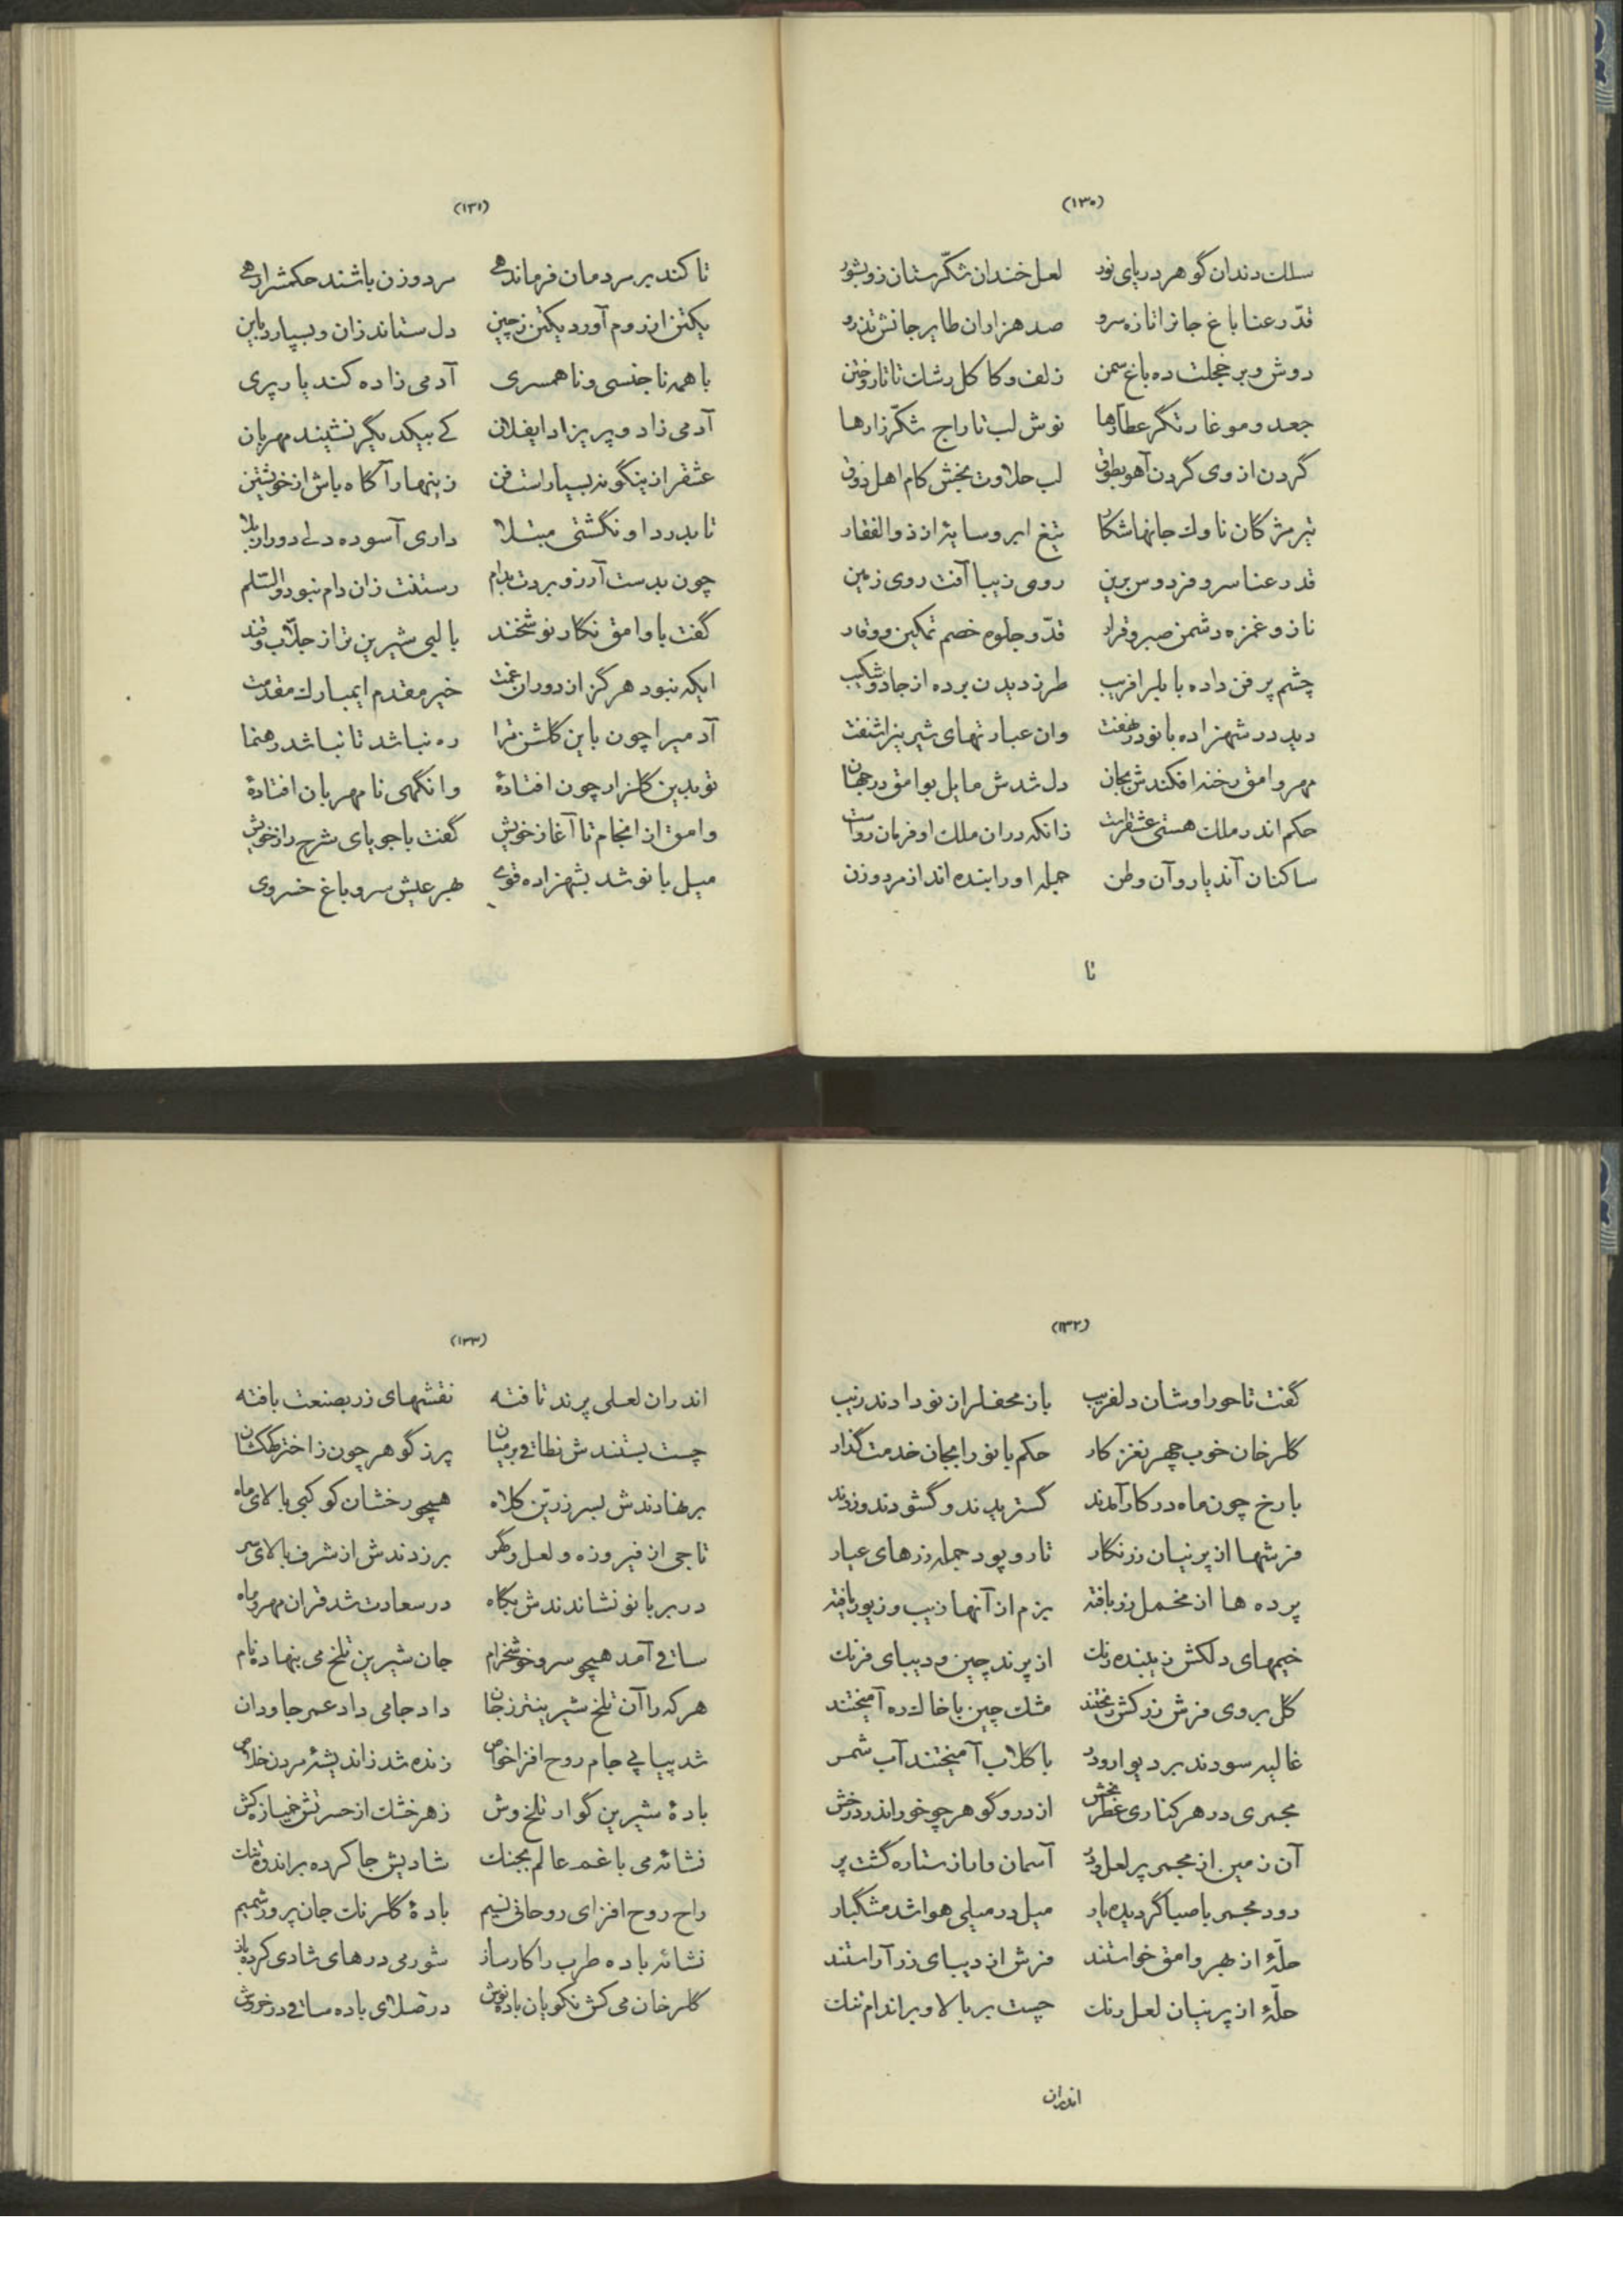 (۱۳۰)
سلك دندان گوهر دریای نور لعل خندان شكّرستان زو بشور
قدّ رعنا باغ جانرا تازه سرو صد هزاران طایر جانش تذرو
دوش و بر خجلت ده باغ سمن زلف و كاكل رشك تاتار و ختن
جعد و مو غارتگر عطارها نوش لب تاراج شكّرزارها
گردن از وی گردن آهو بطوق لب حلاوت بخش كام اهل ذوق
تیر مژگان ناوك جانها شكار تیغ ابرو سایۀ از ذوالفقار
قد رعنا سرو فردوس برین روی زیبا آفت روی زمین
ناز و غمزه دشمن صبر و قرار قدّ و جلوه خصم تمكین و وقار
چشم پر فن داده با بلبر افریب طرز دیدن برده از جادو شكیب
دید در شهزاده بانو در نهفت وان عبارتهای شیرینرا شنفت
مهر وامق رخنه افكندش بجان دل شدش مایل بوامق در جهان
حكم اندر ملك هستی عشقراست زانكه در ان ملك او فرمان رواست
ساكنان آندیار و آن وطن جمله اورا بنده اند از مرد و زن
تا
(۱۳۱)
تا كند بر مردمان فرماندهی مرد و زن باشند حكمشرا رهی
یكتن از روم آورد یكتن ز چین دل ستاند زان و بسپارد باین
با همه ناجنسی و ناهمسری آدمی زاده كند یار پری
آدمی زاد و پریزاد ایفلان كی بیكدیگر نشیند مهربان
عشقرا زینگونه بسیار است فن زینهار آگاه باش از خویشتن
تا بدرد او نگشتی مبتلا داری آسوده دلی دور از بلا
چون بدست آرزو بردت بدام رستنت زان دام نبود والسّلم
گفت با وامق نگار نوشخند با لبی شیرین تر از جلّاب و قند
ایكه نبود هرگز از دوران غمت خیر مقدم ایمبارك مقدمت
آدمیرا چون باین گلشن ترا ره نباشد تا نباشد رهنما
تو بدین گلزار چون افتادۀ وانگهی نامهربان افتادۀ
وامق از انجام تا آغاز خویش گفت با جویای شرح راز خویش
میل بانو شد بشهزاده قوی بهر عیش سرو باغ خسروی
(۱۳۲)
گفت تا حوراوشان دلفریب باز محفلرا ز نو دادند زیب
گلرخان خوب چهر نغز كار حكم بانو را بجان خدمت گذار
با رخ چون ماه در كار آمدند گستریدند و گشودند و زدند
فرشها از پرنیان زرنگار تار و پود جمله زرهای عیار
پرده ها از مخمل زر بافته بزم از آنها زیب و زیور یافته
خیمهای دلكش زیبنده رنك از پرند چین و دیبای فرنك
گل بروی فرش زركش ریختند مشك چین با خاك ره آمیختند
غالیه سودند بر دیوار و در با گلاب آمیختند آب شمر
مجمری در هر كناری عطر بخش از در و گوهر چو خور اندر درخش
آن زمین از مجمر پر لعل و در آسمان واباز ستاره گشت پر
دود مجمر با صبا گردیده یار میل در میلی هوا شد مشگبار
حلّۀ از بهر وامق خواستند فرش از دیبای زر آراستند
حلّۀ از پرنیان لعل رنك چست بر بالا و بر اندام تنك
اندران
(۱۳۳)
اندران لعلی پرند تافته نقشهای زر بصنعت بافته
چست بستندش نطاقی بر میان پر ز گوهر چون ز اختر كهكشان
بر نهادندش بسر زرّین كلاه همچو رخشان كوكبی بالای ماه
تاجی از فیروزه و لعل و گهر بر زدندش از شرف بالای سر
در بر بانو نشاندندش بگاه در سعادت شد قران مهر و ماه
ساقی آمد همچو سرو خوشخرام جان شیرین تلخ می بنهاده نام
هر كه را آن تلخ شیرینتر ز جان داد جامی داد عمر جاودان
شد پیاپی جام روح افزا خواص زنده شد ز اندیشۀ مردن خلاص
بادۀ شیرین گوار تلخ وش زهر خشك از حسرتش خمیازه كش
نشائه می با غم عالم بجنك شادیش جا كرده بر اندوه تنك
راح روح افزای روحانی نسیم بادۀ گلرنك جان پرور شمیم
نشائه باده طرب را كارساز شور می درهای شادی كرده باز
گلرخان می كش نكویان باده نوش در صلای باده ساقی در خروش